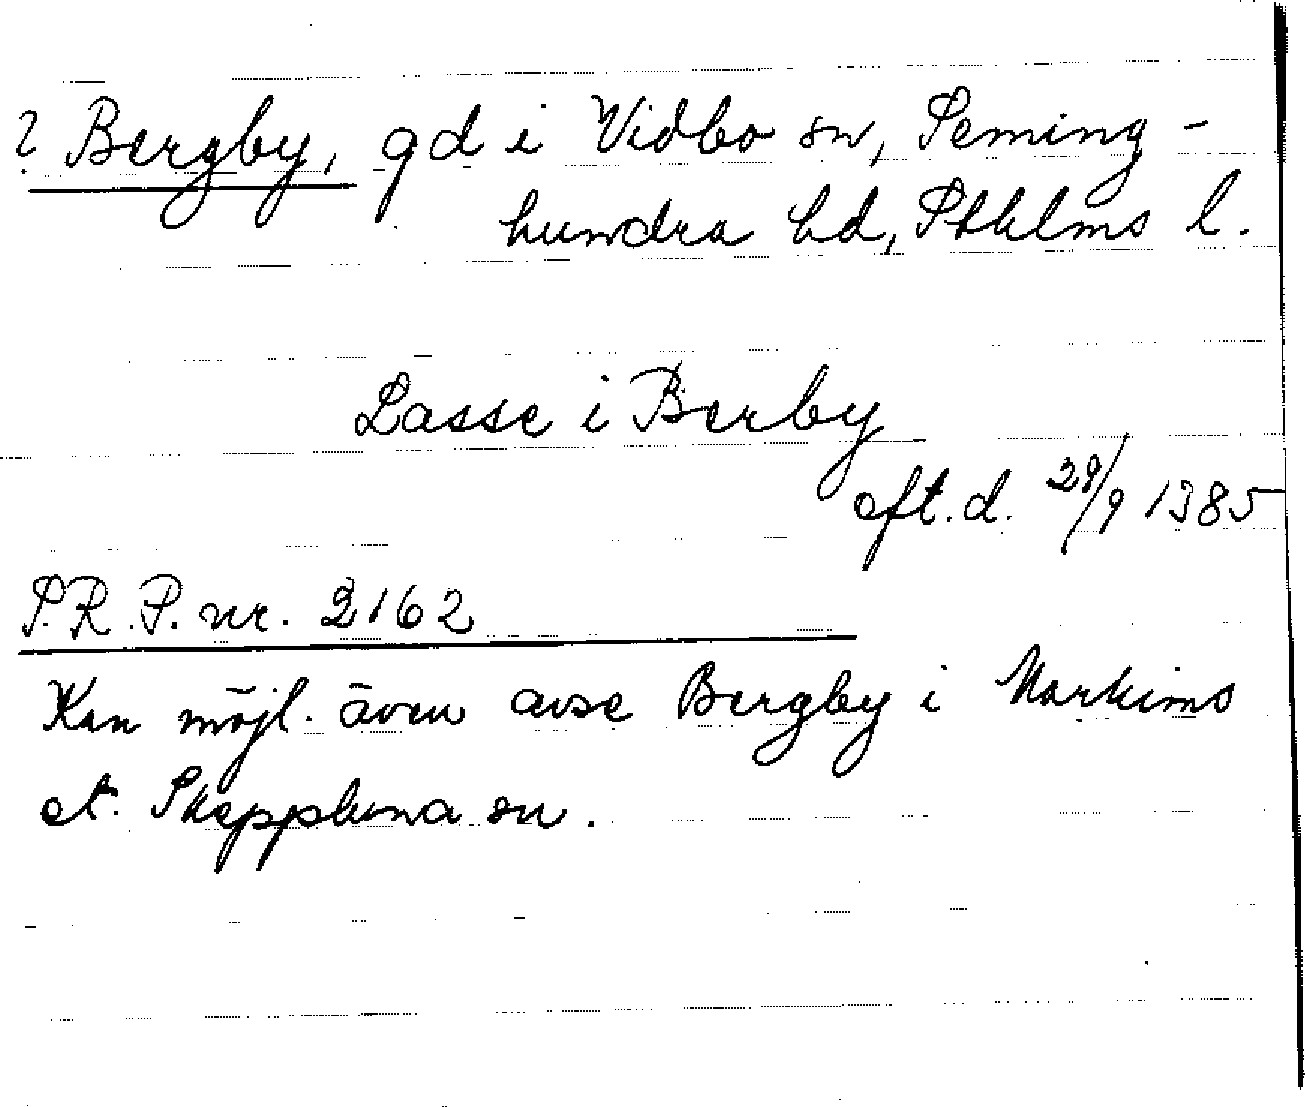 ? Bergby, gd i Vidbo sn, Seming-
hundra hd, Sthlms l.
Lasse i Berby
eft. d. 29/9 1385
S.R.P. nr. 2162
Kan möjl. även avse Bergby i Markims
el. Skepptuna sn.